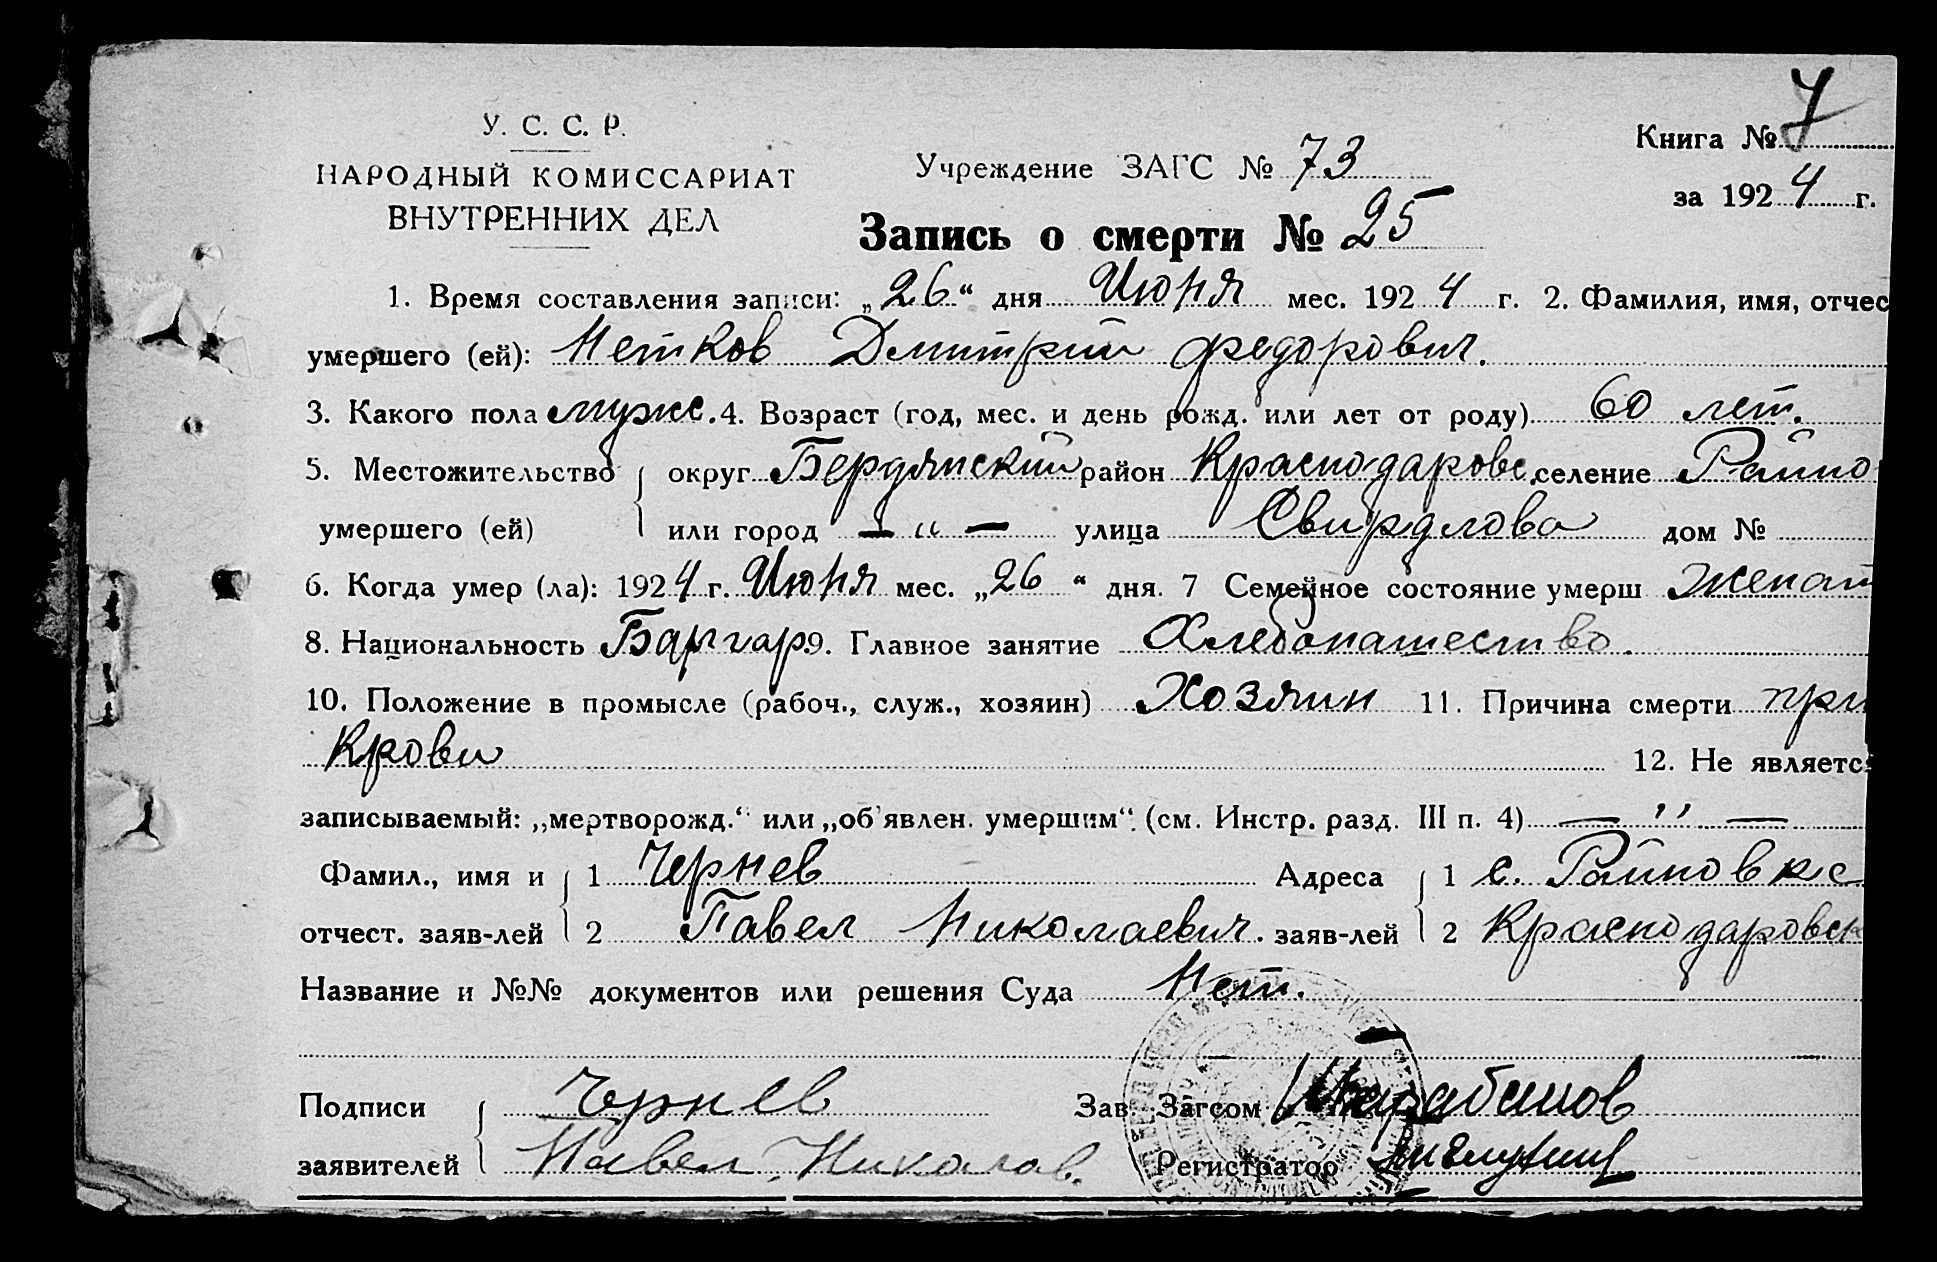 У. С. С. Р.
НАРОДНЫЙ КОМИССАРИАТ
ВНУТРЕННИХ ДЕЛ
Учреждение ЗАГС № 73
Книга № 7
за 1924 г.
Запись о смерти № 25
1. Время составления записи: „26“ дня Июня мес. 1924 г. 2. Фамилия, имя, отчес
умершего (ей): Нетков Дмитрий Федорович.
3. Какого пола мужс. 4. Возраст (год, мес. и день рожд. или лет от роду) 60 лет.
5. Местожительство округ Бердянский район Краснодаровс. селение Райно
умершего (ей) или город — „ — улица Свирдлова дом №
6. Когда умер (ла): 1924 г. Июня мес. „26“ дня. 7 Семейное состояние умерш Женат
8. Национальность 9. Главное занятие Хлебопашество.
10. Положение в промысле (рабоч., служ., хозяин) Хозяин 11. Причина смерти при
Крови 12. Не являетс
записываемый: „мертворожд.“ или „об'явлен. умершим“. (см. Инстр. разд. III п. 4) — „ —
Фамил., имя и 1 Чернев Адреса 1 с. Райновка
отчест. заяв-лей 2 Павел Николаевич. заяв-лей 2 Краснодаровск
Название и №№ документов или решения Суда Нет.
Подписи Чернев Зав. Загсом
заявителей Павел Николав. Регистратор